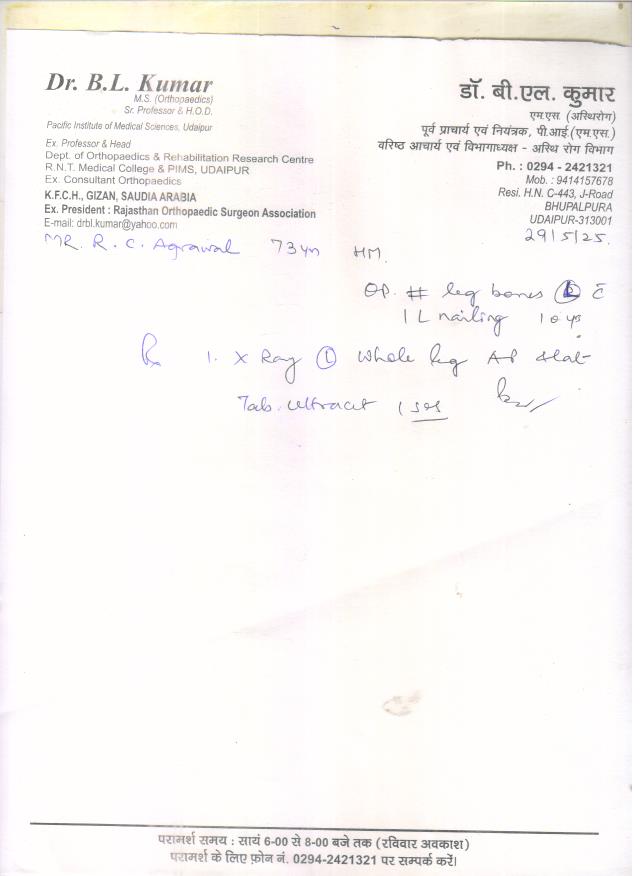 Dr. B.L. Kumar
M.S. (Orthopaedics)
Sr. Professor & H.O.D.
Pacific Institute of Medical Sciences, Udaipur
Ex. Professor & Head
Dept. of Orthopaedics & Rehabilitation Research Centre
R.N.T. Medical College & PIMS, UDAIPUR
Ex. Consultant Orthopaedics
K.F.C.H., GIZAN, SAUDIA ARABIA
Ex. President : Rajasthan Orthopaedic Surgeon Association
E-mail: drbl.kumar@yahoo.com
डॉ. बी.एल. कुमार
एम.एस. (अस्थिरोग)
पूर्व प्राचार्य एवं नियंत्रक, पी.आई.(एम.एस.)
वरिष्ठ आचार्य एवं विभागाध्यक्ष - अस्थि रोग विभाग
Ph. : 0294 - 2421321
Mob. : 9414157678
Resi. H.N. C-443, J-Road
BHUPALPURA
UDAIPUR-313001
29/5/25.
MR. R. C. Agrawal 73 yr HM.
OP. # leg bones (L) c̄
IL nailing 10 yr
Rx 1. X Ray (L) Whole leg AP & lat
Tab. Ultracet 1 SOS
परामर्श समय : सायं 6-00 से 8-00 बजे तक (रविवार अवकाश)
परामर्श के लिए फ़ोन नं. 0294-2421321 पर सम्पर्क करें।